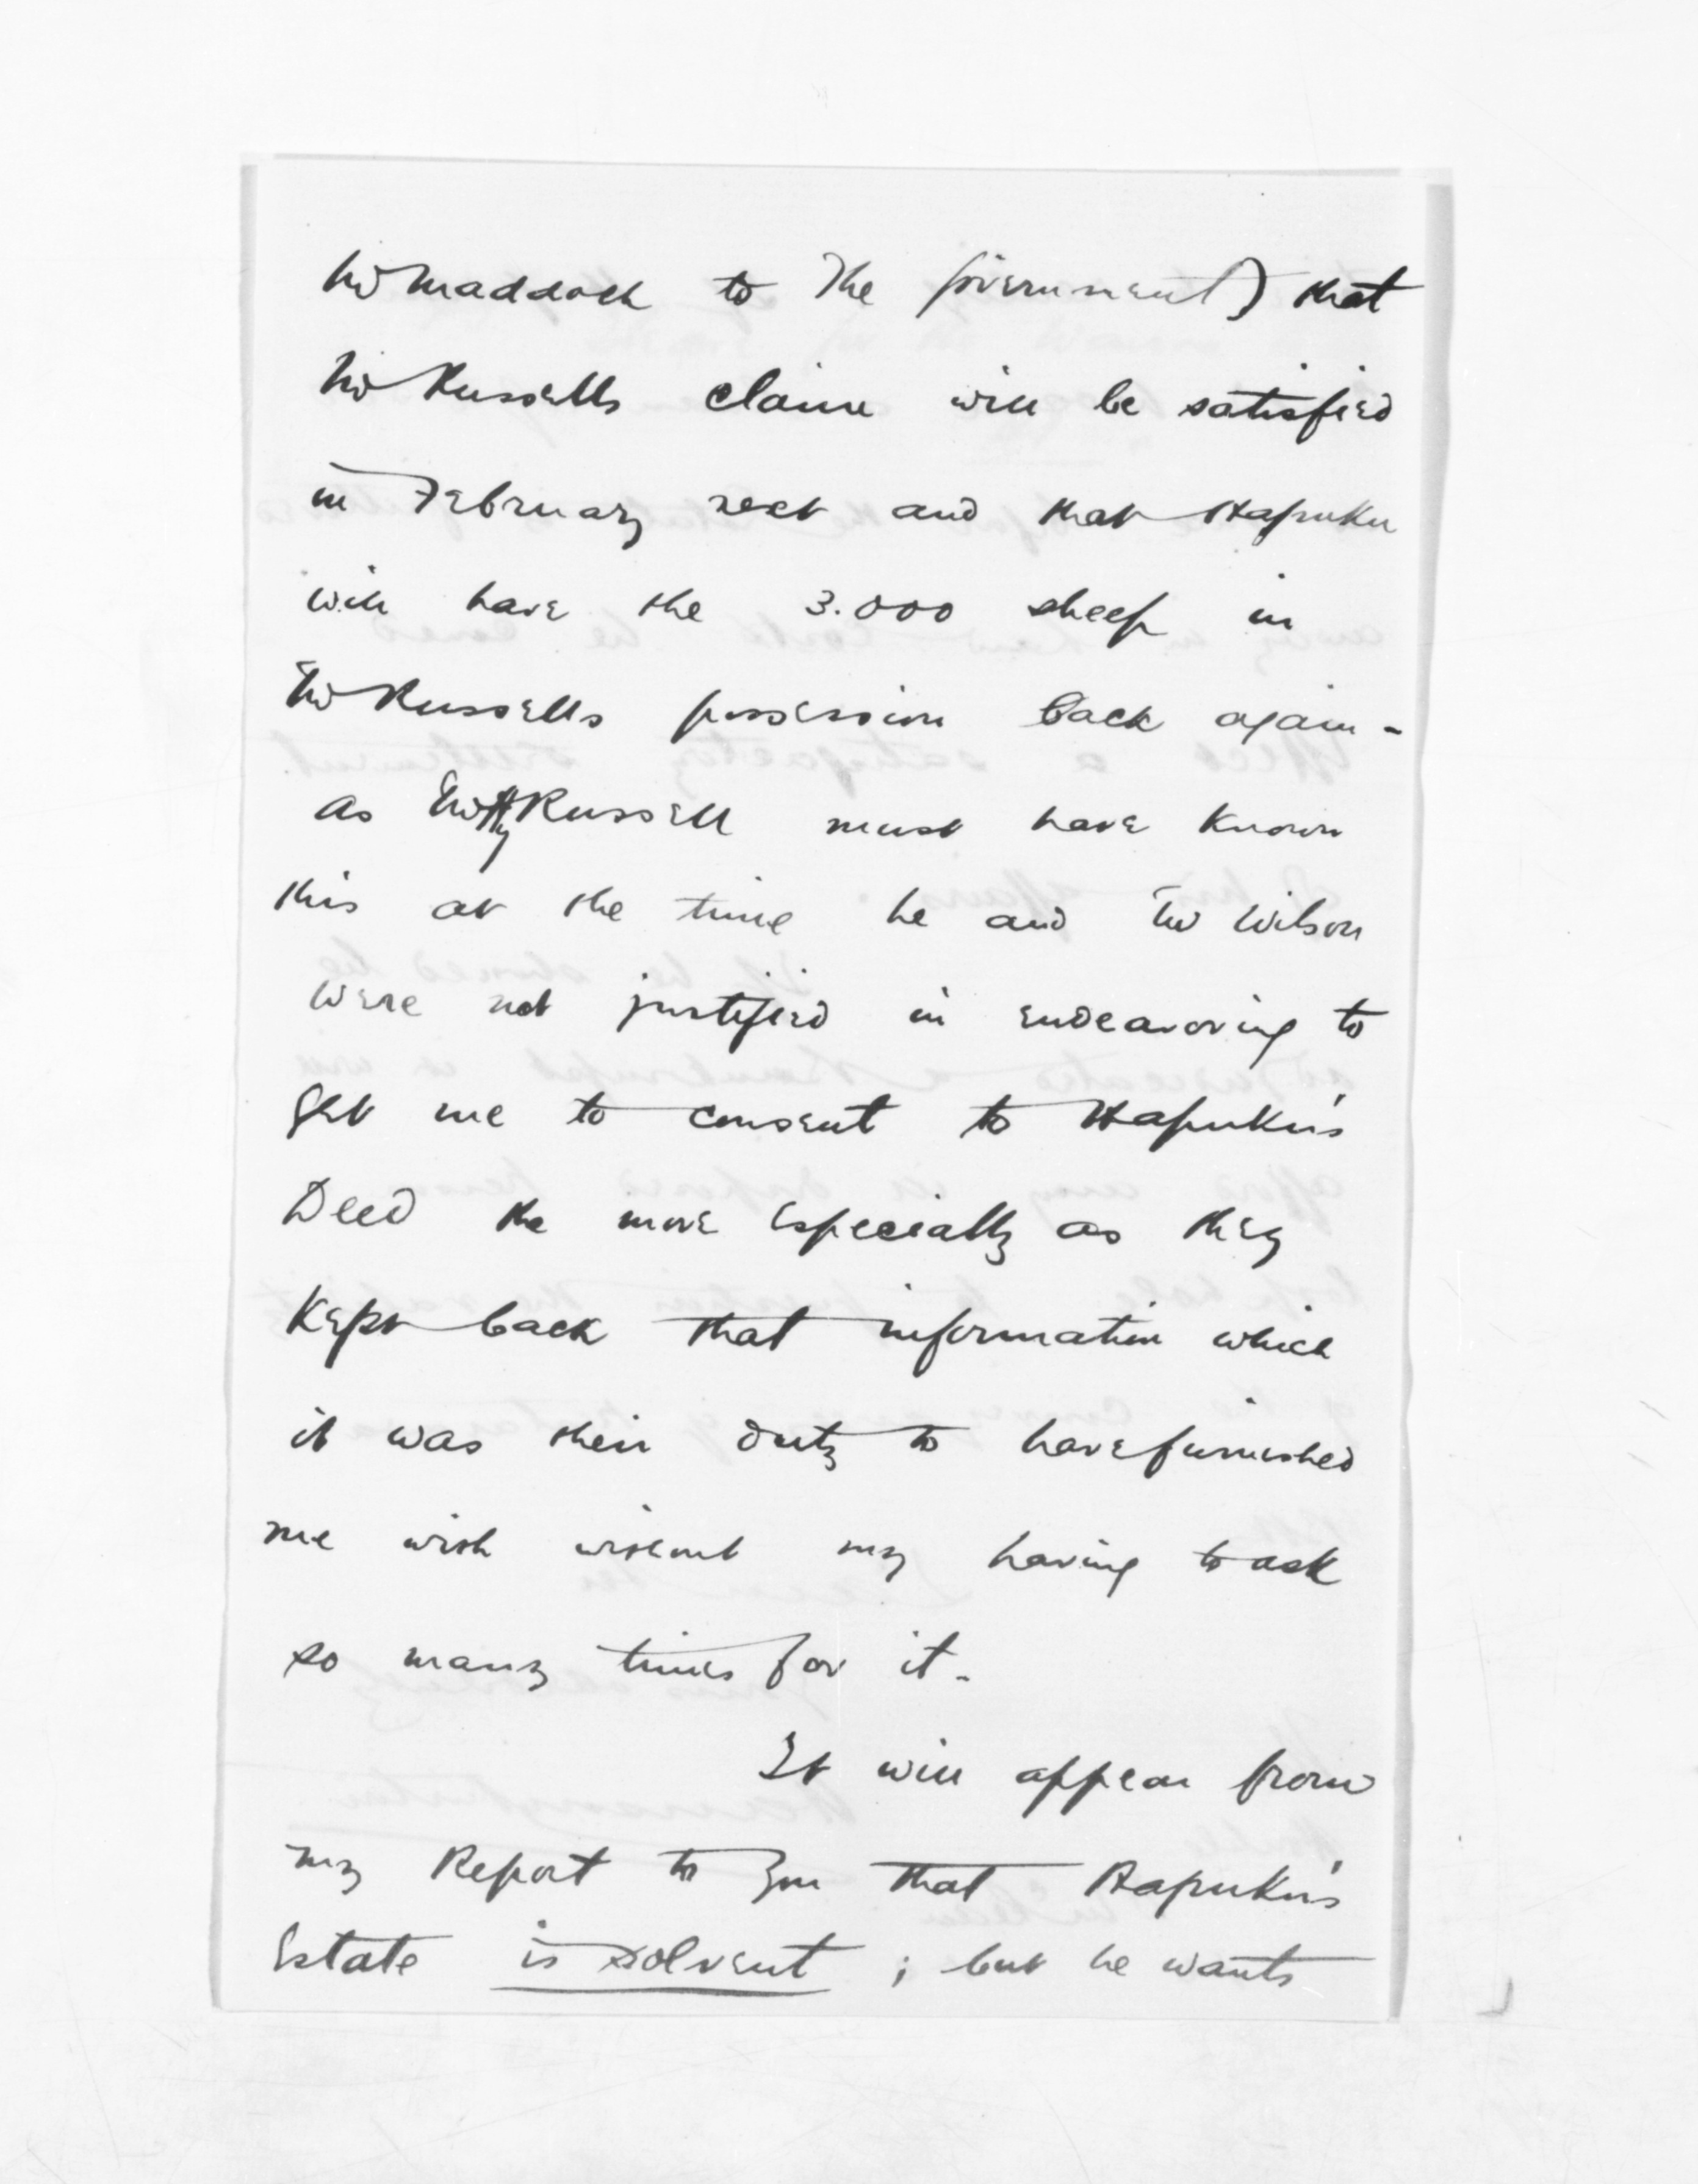 Mr Maddock to the Government) that
Mr Russells claim will be satisfied
in February next and that Hapuku
will have the 3.000 sheep in
Mr Russells possession back again -
as Mr Hy Russell must have known
this at the time he and Mr Wilson
were not justified in endeavoring to
get me to consent to Hapuku's
Deed the more especially as they
kept back that information which
it was their duty to have furnished
me with without my having to ask
so many times for it.
It will appear from
my Report to you that Hapuku's
Estate is solvent ; but he wants